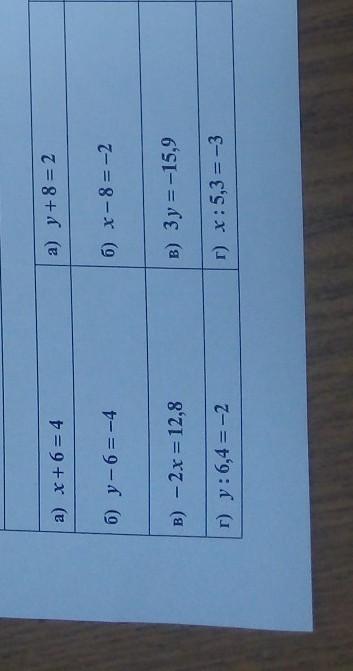 а) x + 6 = 4
а) y + 8 = 2
б) y − 6 = −4
б) x − 8 = −2
в) −2x = 12,8
в) 3y = −15,9
г) y : 6,4 = −2
г) x : 5,3 = −3